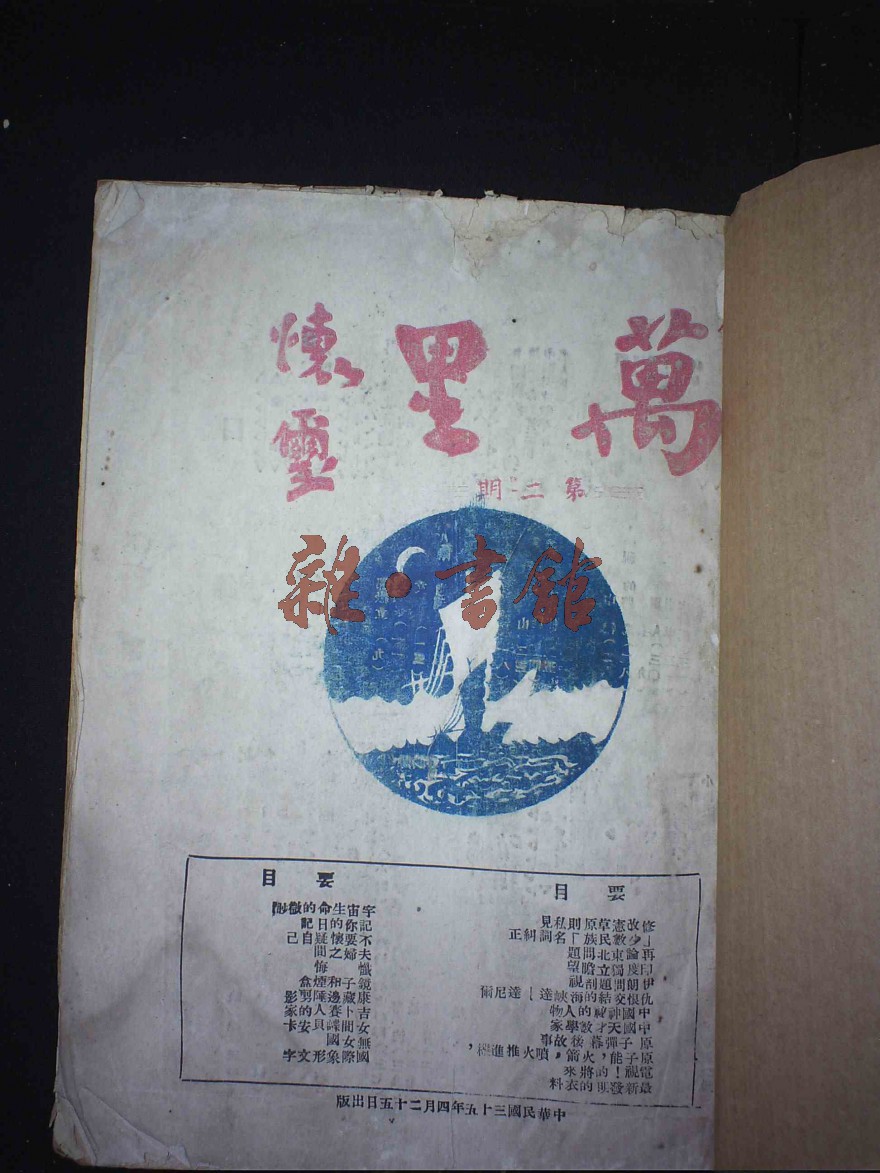 萬里
懷
第二期
雜·書館
要目
修改憲草原則私見
「少數民族」名詞糾正
再論東北問題
印度獨立瞻望
伊朗問題剖視
仇恨交結的海峽達—達尼爾
中國神祕的人物
中國天才數學家
原子彈幕後故事
原子能,火箭,噴火推進機,
電視!的將來
最新發明的衣料
要目
宇宙生命的微妙
記你的日記
不要懷疑自己
夫婦之間
懺悔
鏡子和煙盒
康藏邊陲剪影
吉卜賽人的家
女間諜貝安卡
無女國
國際象形文字
中華民國三十五年四月二十五日出版